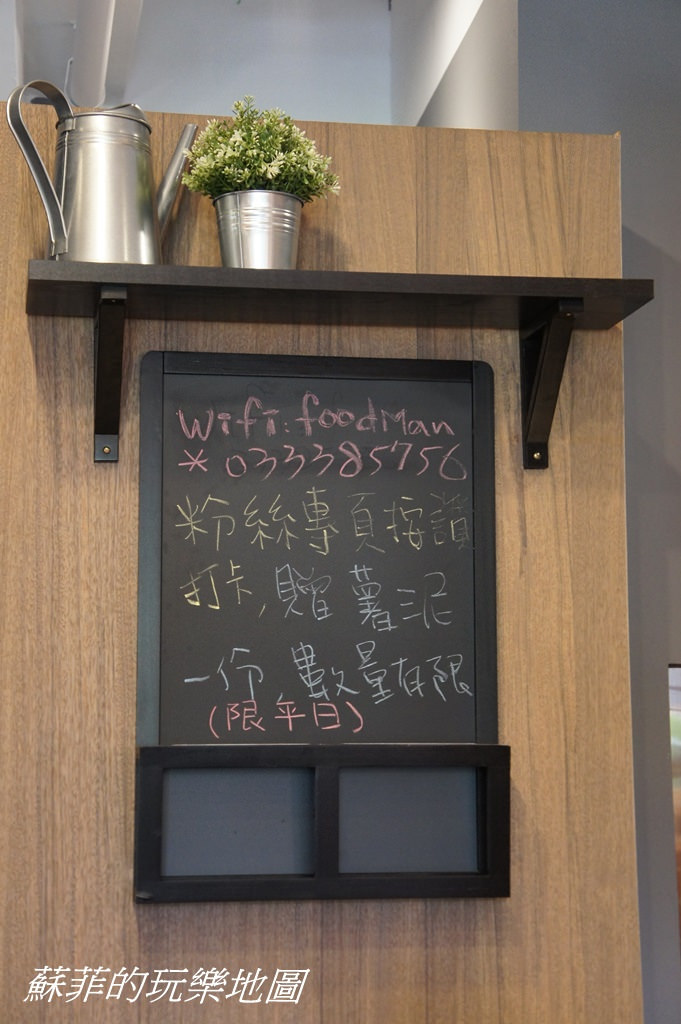 Wifi:foodMan
* 033385756
粉絲專頁按讚
打卡,贈薯泥
一份,數量有限
(限平日)
蘇菲的玩樂地圖